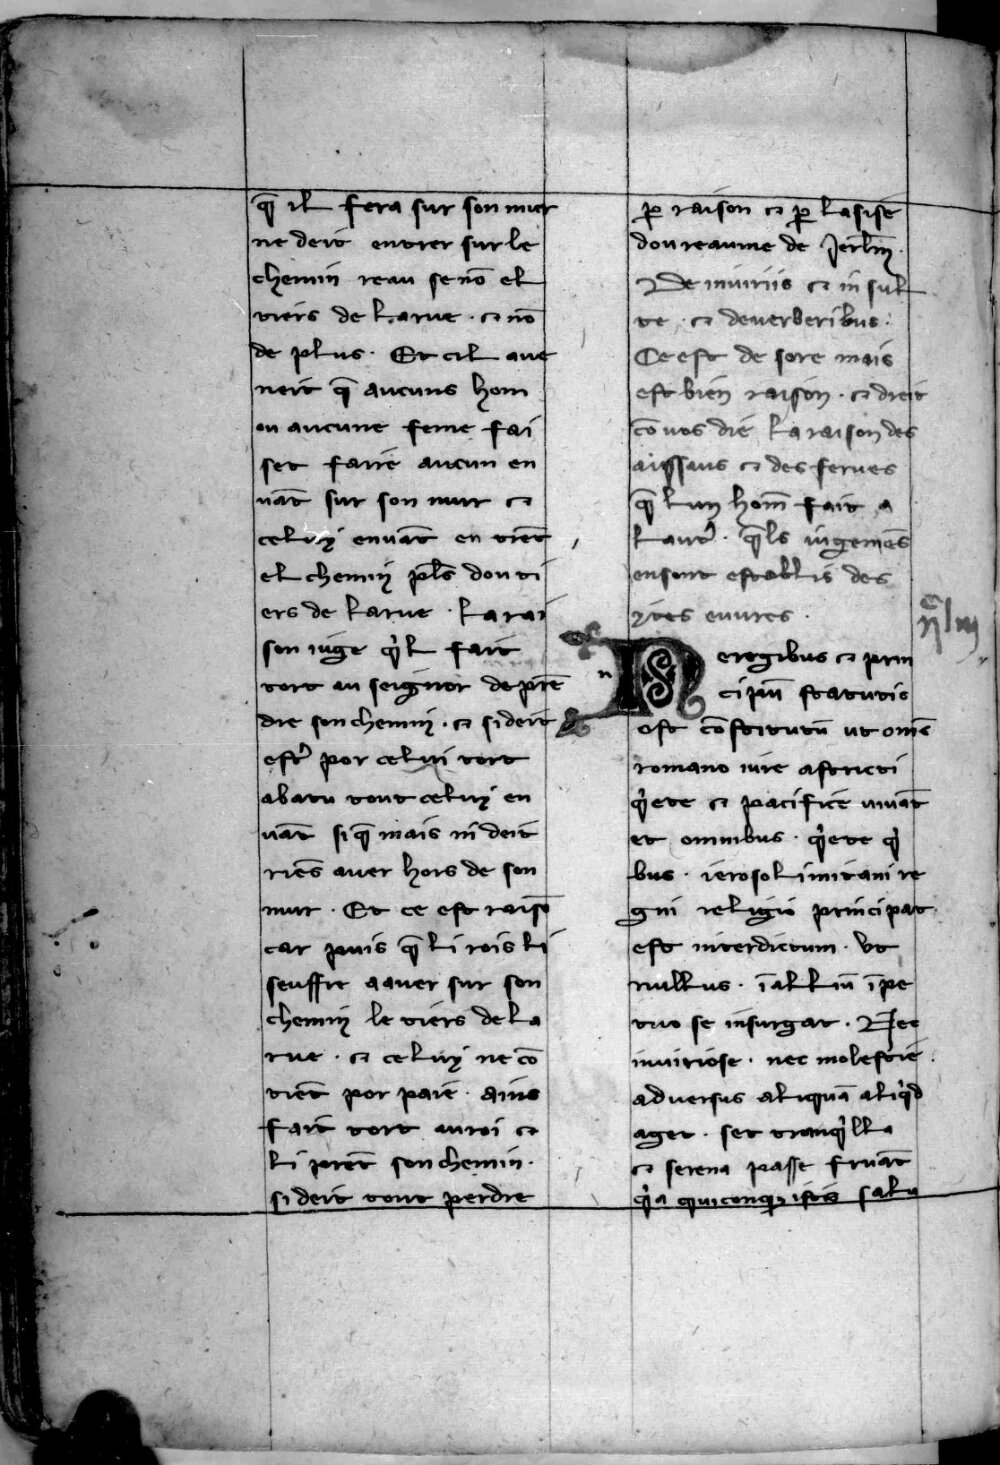 q̄ il fera sur son mur
ne deit entrer sur le
chemin reau se nō el
tiers de la rue · ⁊ nō
de plus · Et cil aue
neit q̄ aucuns hom
ou aucune feme fai
set faire aucun en
uāt sur son mur ⁊
celuy enuāt en tiēt
el chemin pl̄s dou ti
ers de la rue · la rai
son iuge q̇l fait
tort au seignor de prē
dre son chemin · ⁊ si deit
estr̄ por celui tort
abatu tout celuy en
uāt si q̄ mais ni deit
riēs auer hors de son
mur · Et ce est raisō
car puis q̄ li rois li
seuffre a auer sur son
chemin le tiers de la
rue · ⁊ celuy ne cō
tiēt por paié · ains
fait tort au roi ⁊
li prēt son chemin ·
si deit tout perdre
p̱ raison ⁊ p̱ lasise
dou reaume de Jerl̄m ·
De iniuriis ⁊ in sul
te · ⁊ de uerberibus ·
Ce est de sore mais
est bien raison · ⁊ dreit
cō uos die la raison des
aissaus ⁊ des ferues
q̄ lun hom̄ fait a
lautr̄ · q̄ls iugemēs
en sont establis des
ites euures ·
n
Deregibus ⁊ prin
cipiū statutis
est cōstitutū ut om̄s
romano iure astricti
q̇ete ⁊ pacifice uiuāt
et omnibus · q̇ete q̇
bus · ierosolimitani re
gni religio principat
est interdictum · Vt
nullus · ī alliū īpe
tuo se insurgat · Nec
iniuriose · nec molestie ·
aduersus aliquā aliq̇d
aget · set tranq̇lla
⁊ serena passe fruāt
q̇a quiconq; istis salu